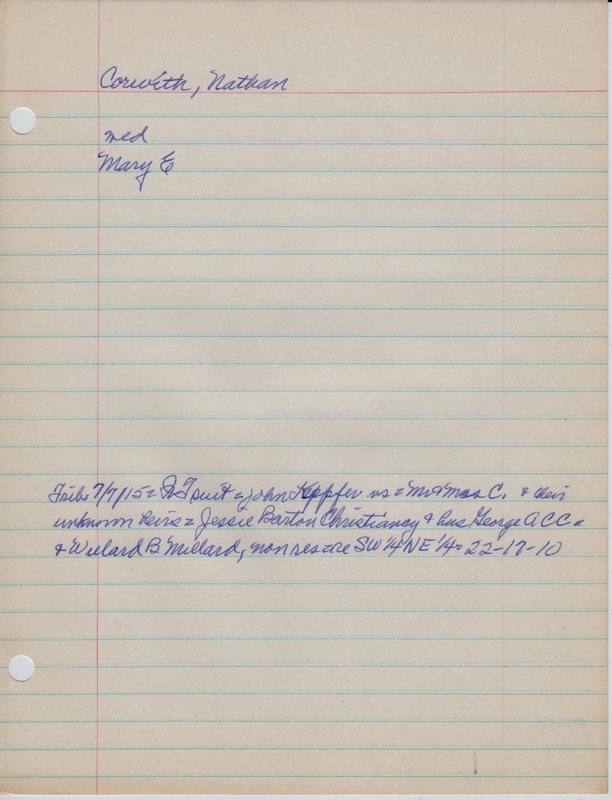 Corwith, Nathan
med
Mary E
Trib 7/7/15 = suit = John Kppfer vs = Mr & Mrs C. & their
unknown heirs = Jessie Barton Christiancy & hus George A C C =
& Willard B Millard, non res = re SW 1/4 NE 1/4 = 22-17-10